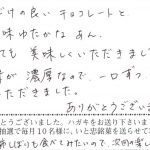 だけの良い チョコレートと、
味ゆたかな あん、
ても 美味しくいただきまし
が 濃厚なので、一口ずつ
ただきました。
ありがとうござい
とうございました。ハガキをお送り下さいま
抽選で毎月10名様に、いと忠銘菓を送らせて
姉しぼりも食べてみたいので、次回の楽し